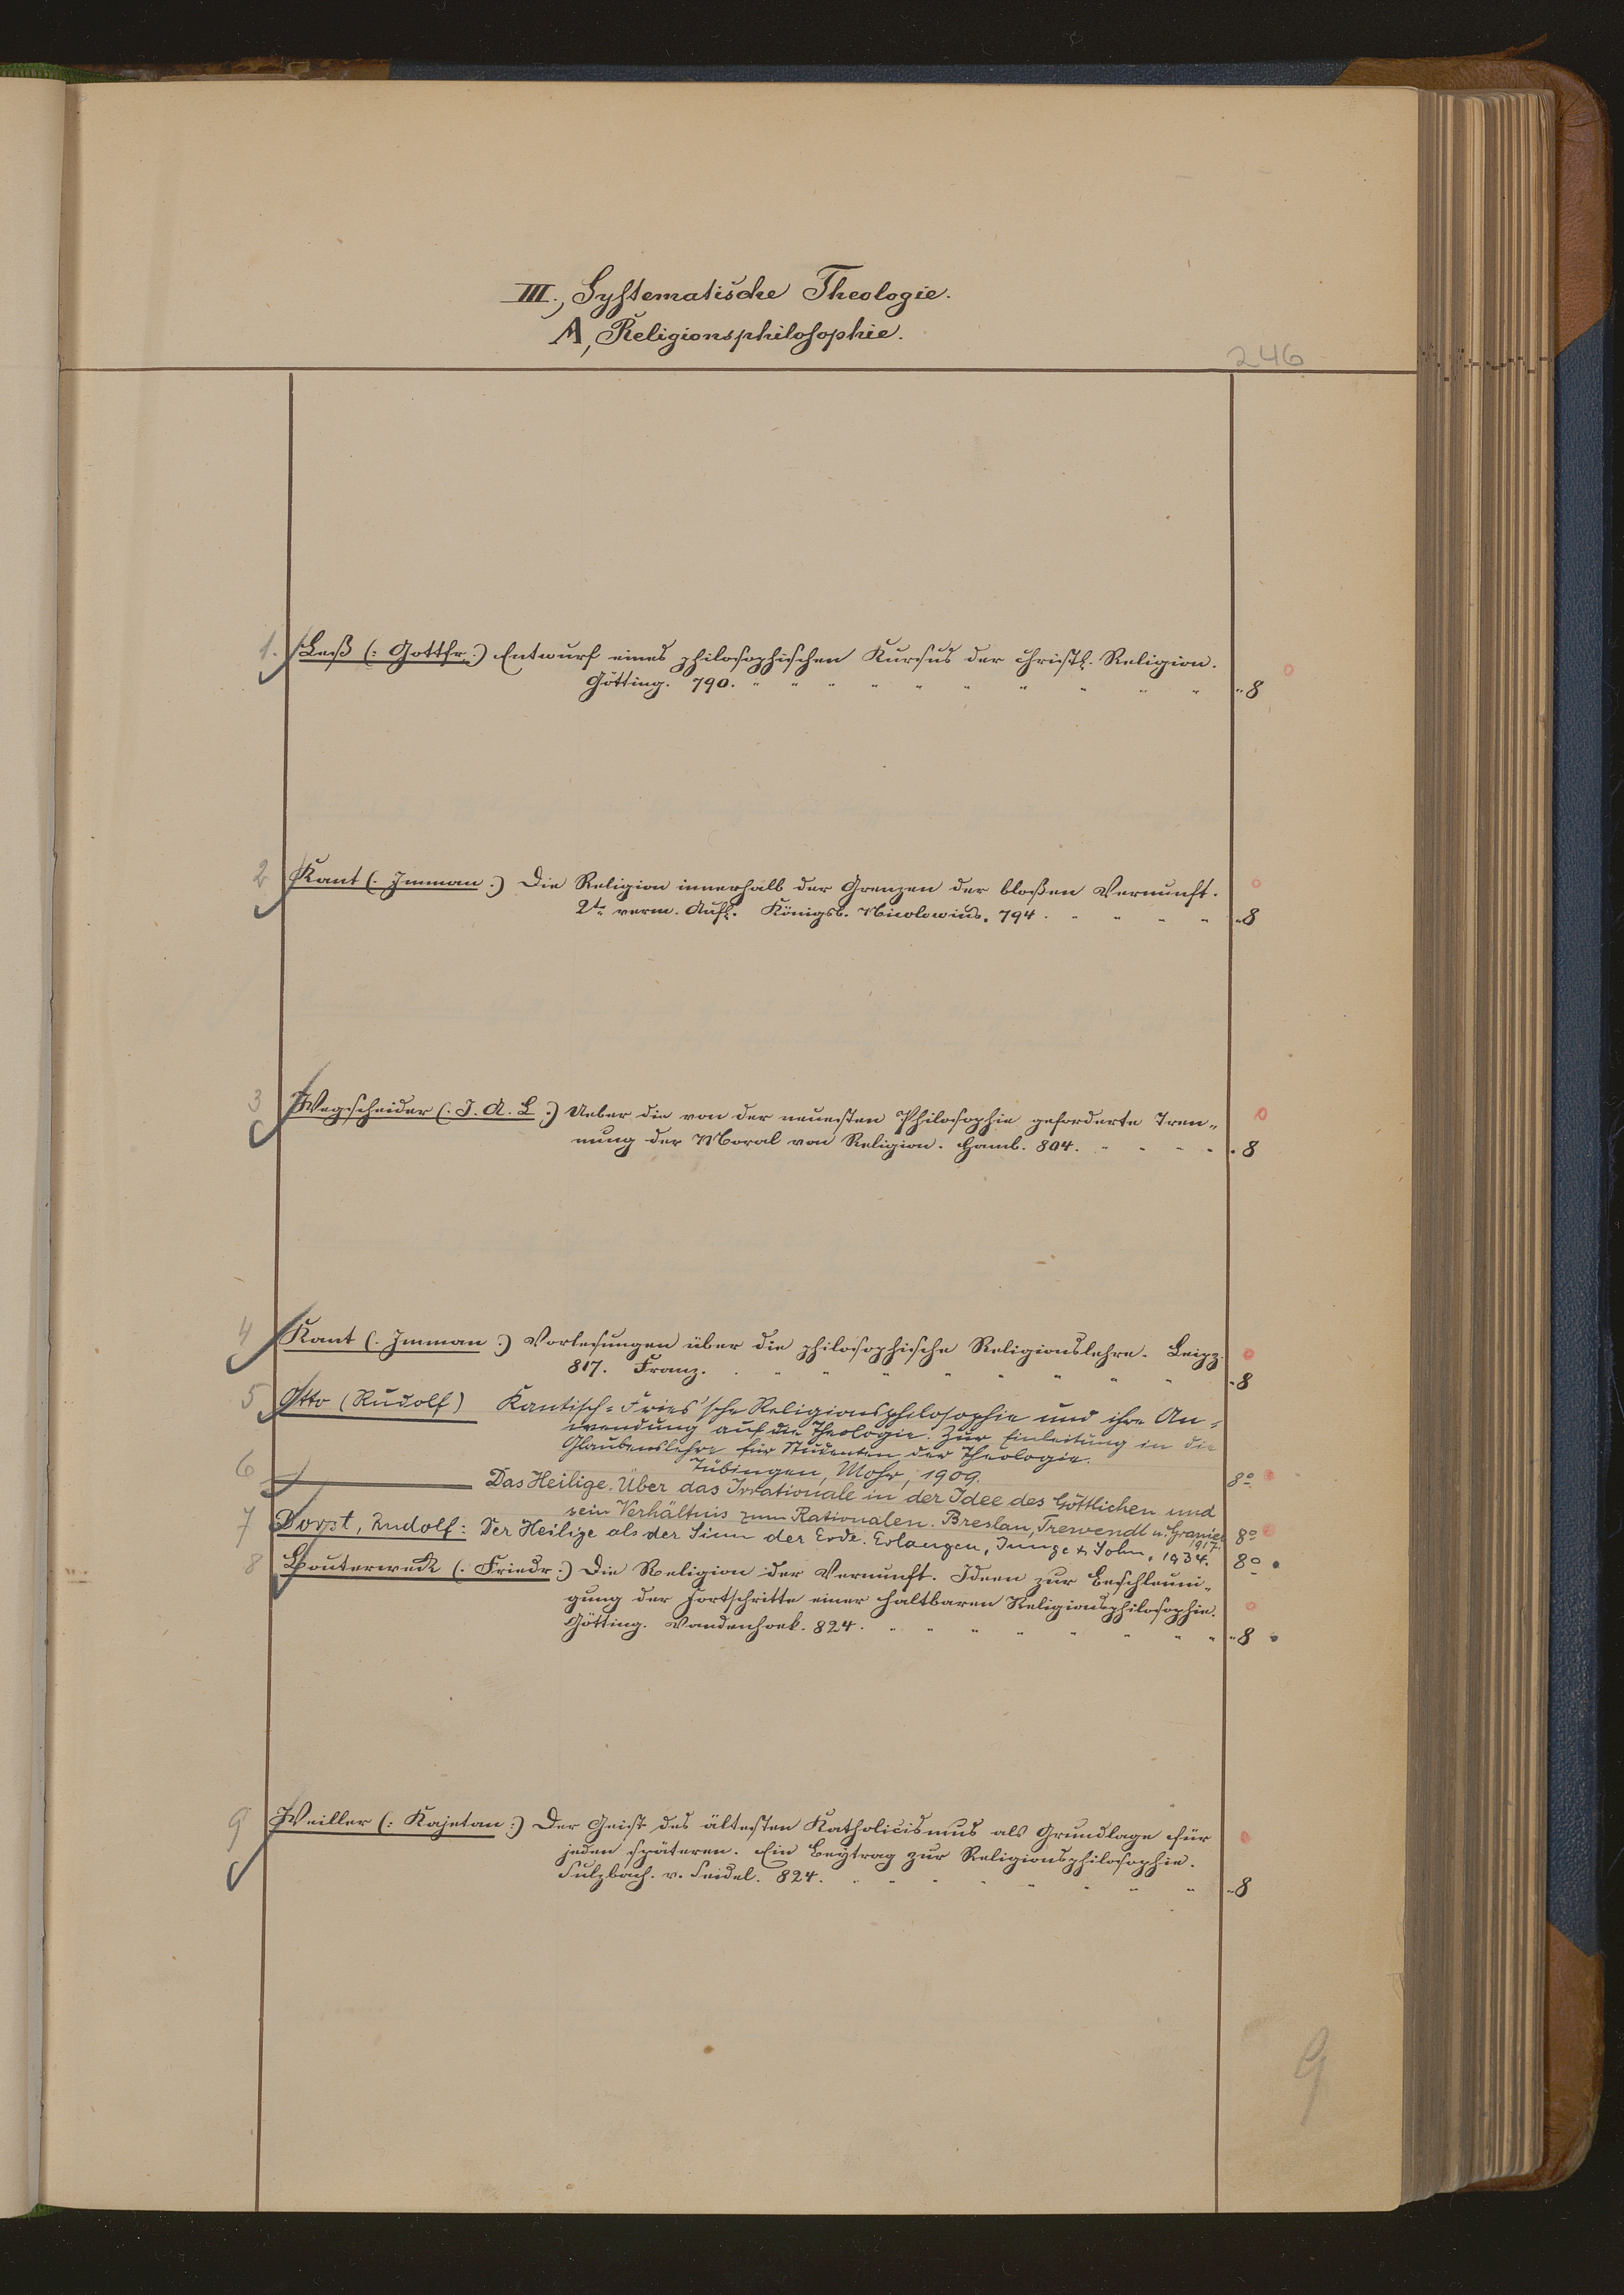 III., Systematische Theologie.
A, Religionsphilosophie.
246
1. Leß (: Gottfr.:) Entwurf eines philosophischen Kursus der christl. Religion.
Götting. 790. " " " " " " " " " " " 8
2 Kant (: Imman :) Die Religion innerhalb der Grenzen der bloßen Vernunft.
2te verm. Aufl. Königsb. Nicolovius. 794. " " " " " 8
3 Wegscheider (: J. A. L :) Ueber die von der neuesten Philosophie geforderte Tren„
nung der Moral von Religion. Hamb. 804. " " " " " 8
4 Kant (: Imman :) Vorlesungen über die philosophische Religionslehre. Leipz.
817. Franz. " " " " " " " " " 8
5 Otto (Rudolf) Kantisch=Fries'sche Religionsphilosophie und ihre An=
wendung auf die Theologie. Zur Einleitung in die
Glaubenslehre für Studenten der Theologie.
Tübingen, Mohr, 1909. 8º
6 ——— Das Heilige. Über das Irrationale in der Idee des Göttlichen und
sein Verhältnis zum Rationalen. Breslau, Trewendt u. Granier 1917. 8º
7 Dorst, Rudolf: Der Heilige als der Sinn der Erde. Erlangen, Junge & Sohn, 1934. 8º
8 Bouterweck (: Friedr :) Die Religion der Vernunft. Ideen zur Beschleuni„
gung der Fortschritte einer haltbaren Religionsphilosophie.
Götting. Vandenhoek. 824. " " " " " " " " " 8
9 Weiller (: Kajetan :) Der Geist des ältesten Katholicismus als Grundlage für
jeden späteren. Ein Beytrag zur Religionsphilosophie.
Sulzbach. v. Seidel. 824. " " " " " " " " " 8
9